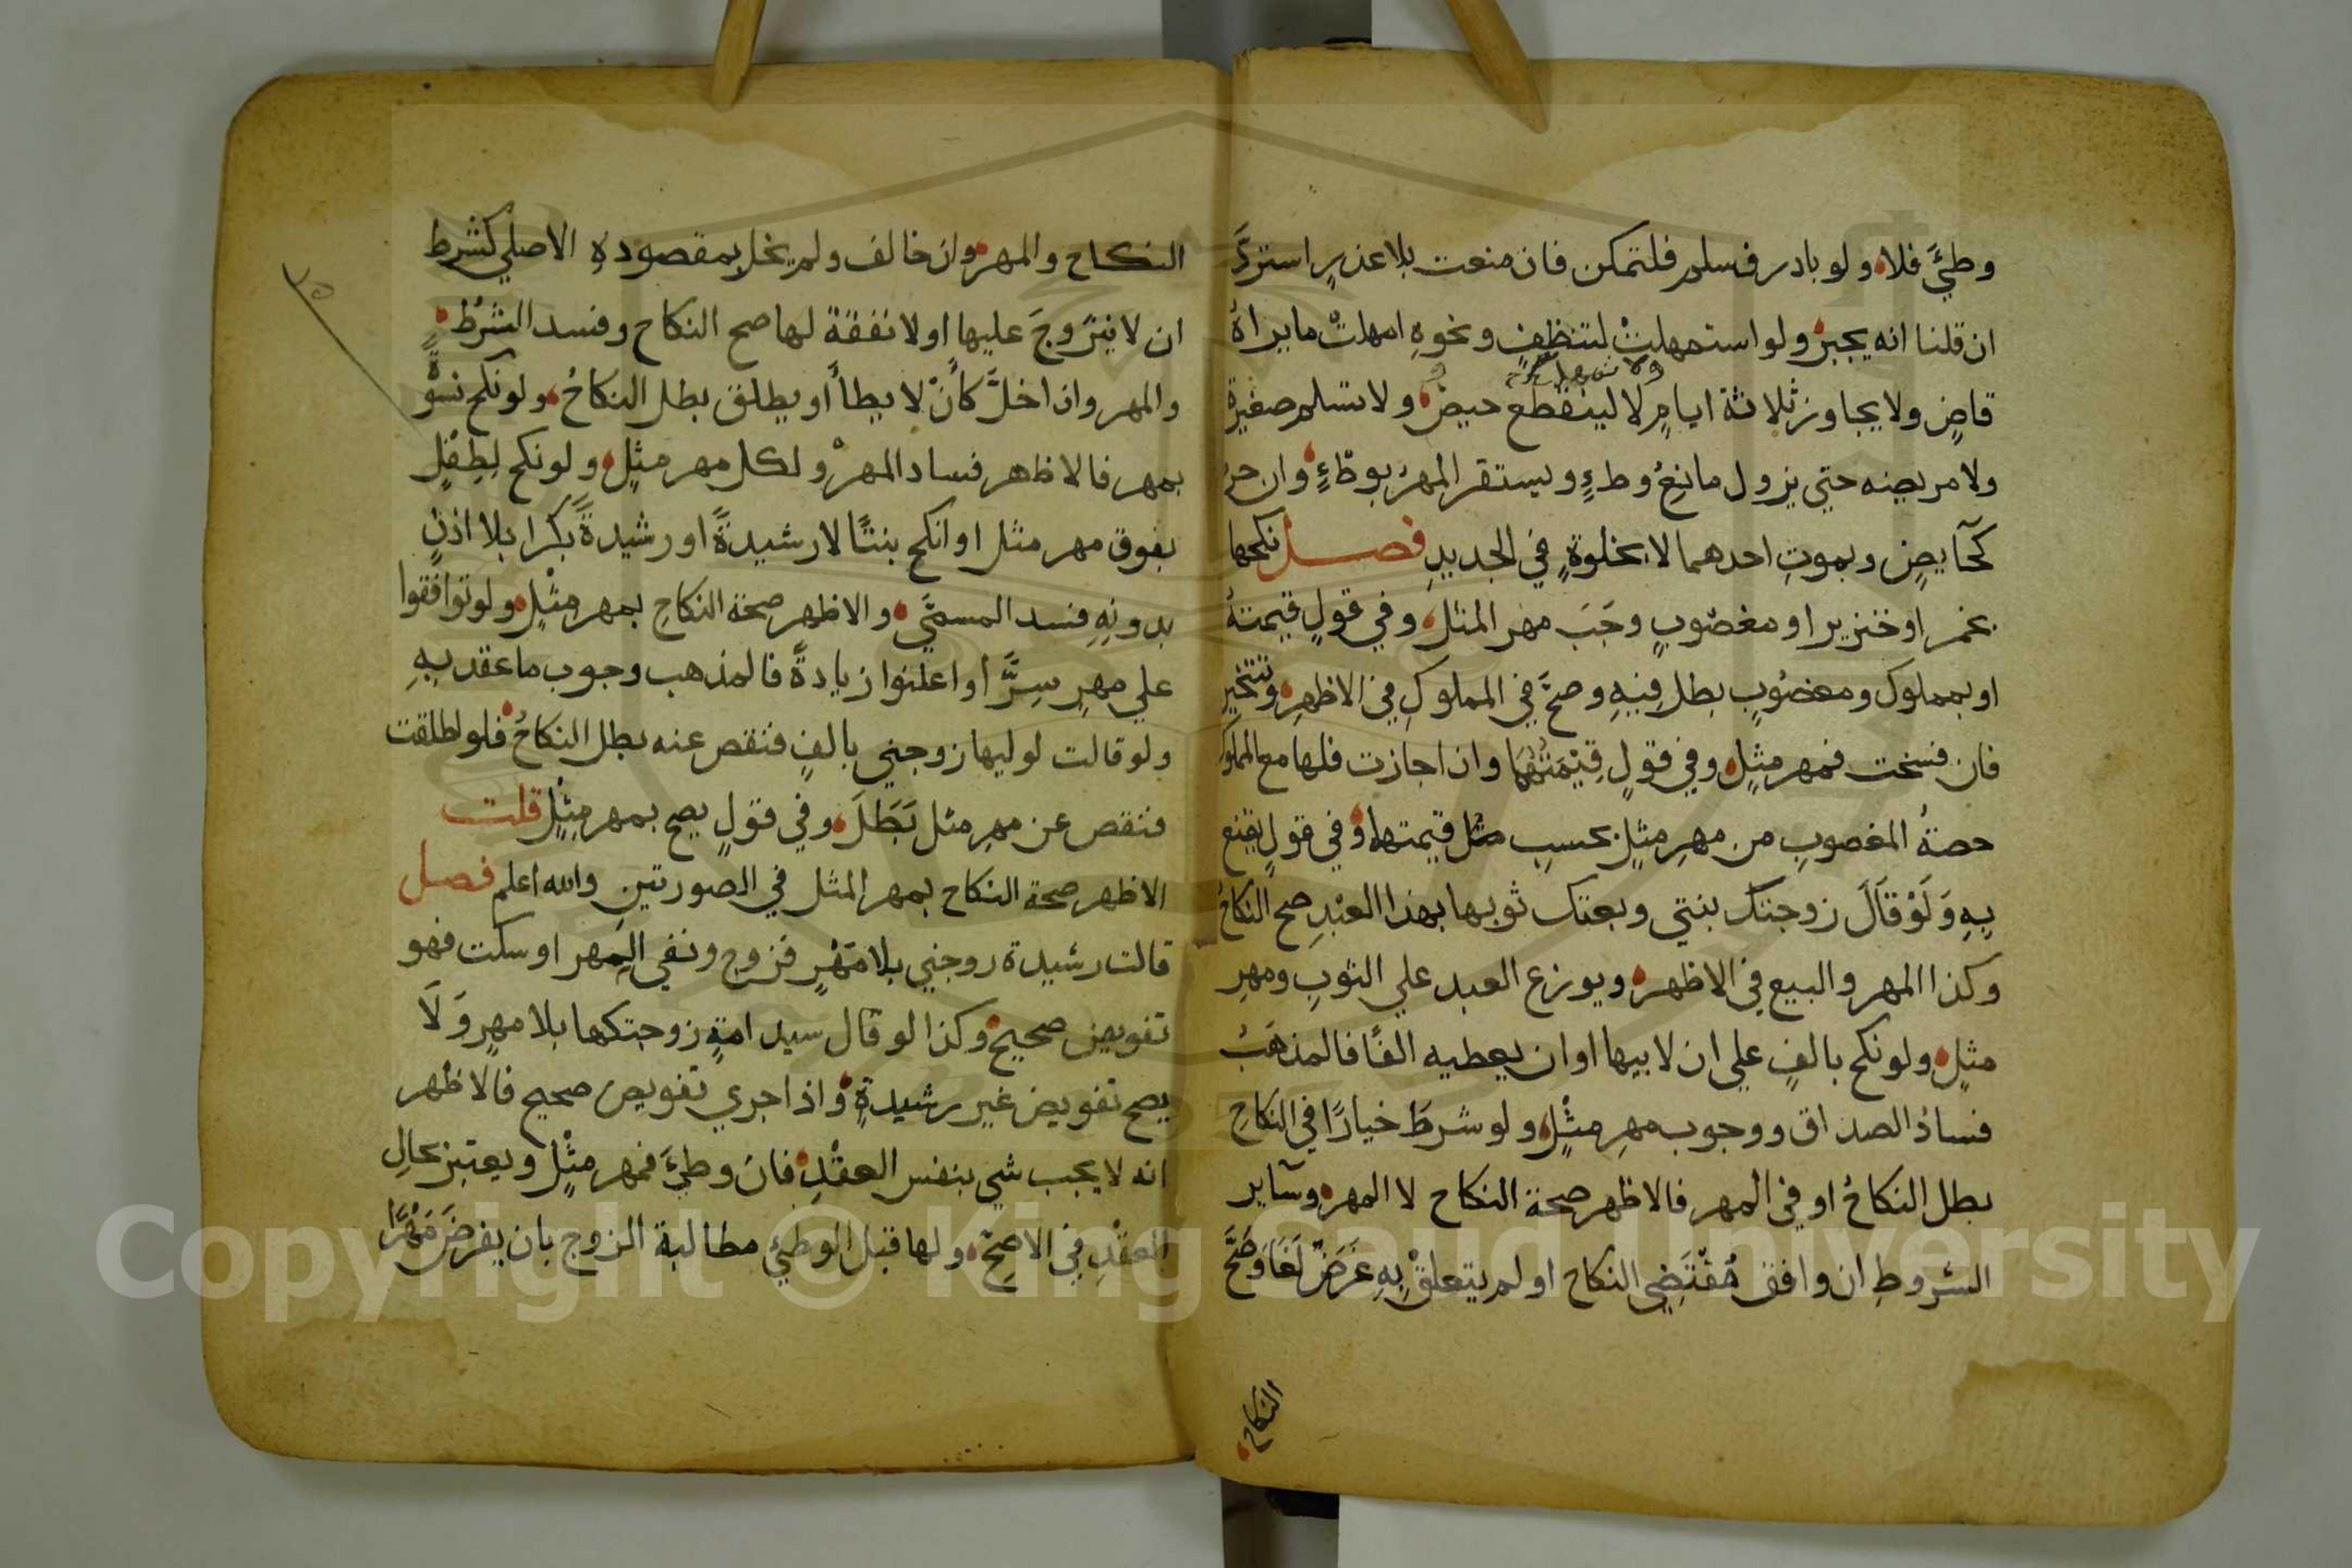 وطئَ فلا ولو بادر فسلم فلتمكن فان منعت بلا عذرٍ استردَّ
ان قلنا انه يجبر ولو استمهلتْ لتنظفٍ ونحوهِ امهلتْ ما يراهُ
قاضٍ ولا يجاوز ثلاثة ايامٍ لا لينقطع حيضٌ ولا تسلم صغيرة
ولا مريضه حتي يزول مانعُ وطءٍ ويستقر المهرُ بوطءٍ وان حرُمَ
كحآيضٍ وبموتِ احدهما لا بخلوةٍ في الجديدِ فصل نكحها
بخمر او خنزير او مغصُوبٍ وجَبَ مهر المثل وفي قولٍ قيمتهُ
او بمملوك ومغصُوبٍ بطل فيهِ وصحَّ في المملوكِ في الاظهرِ وتتخير
فان فسخت فمهر مثلٍ وفي قولٍ قيمَتُهُمَا وان اجازت فلها مع المملوك
حصةُ المغصوبِ من مهرِ مثلٍ بحسبِ قيمتهما وفي قولٍ تقنع
بهِ وَلَوْ قَالَ زوجتكَ بنتي وبعتك ثوبها بهذا العَبْدِ صح النكاحُ
وكذا المهر والبيع في الاظهر ويوزع العبد علي الثوبِ ومهرِ
مثلٍ ولو نكح بالفٍ علي ان لابيها او ان يعطيه الفًا فالمذهَبُ
فسادُ الصداق ووجوب مهرِ مثْلٍ ولو شرطَ خيارًا في النكاحِ
بطل النكاحُ او في المهر فالاظهر صحة النكاح لا المهر وسآير
الشروطِ ان وافق مُقْتَضِي النكاح او لم يتعلقْ بهِ غَرَضٌ لَغَا وَصَحَّ
النكاح
٣٥
النكاح والمهر وان خالف ولم يخل بمقصودهِ الاصلي كشرط
ان لا يتزوجَ عليها او لا نفقة لها صح النكاح وفسد الشرطُ
والمهر وان اخلَّ كأنْ لا يطأ أو يطلق بطل النكاحُ ولو نكح نسوةً
بمهر فالاظهر فساد المهرْ ولكل مهر مثلٍ ولو نكح لِطِفْلٍ
بفوق مهر مثل او انكح بنتًا لا رشيدةً او رشيدةً بكرا بلا اذنٍ
بدونهِ فسد المسمَّي والاظهر صحة النكاحِ بمهر مثْلٍ ولو توافقوا
علي مهرٍ سِرًّا أو اعلنوا زيادةً فالمذهب وجوب ما عقد بهِ
ولو قالت لوليها زوجني بالفٍ فنقص عنه بطل النكاحُ فلو اطلقت
فنقص عن مهرِ مثل بَطَلَ وفي قولٍ يصح بمهر مِثْلٍ قلت
الاظهر صحة النكاح بمهر المثل في الصورتينِ والله اعلم فصل
قالت رشيدة زوجني بلا مَهْرٍ فزوج ونفي المهر او سكت فهو
تفويض صحيحٌ وكذا لو قال سيد امةٍ زوجتكها بلا مهرٍ وَلَا
يصح تفويض غير رشيدةٍ وَاذا جري تفويض صحيح فالاظهر
انه لا يجب شي بنفس العقْدِ فان وطئَ فمهر مثْلٍ ويعتبر بحالِ
العقْدِ في الاصحّ ولها قبل الوطئِ مطالبة الزوج بان يفرضَ مَهْرًا
Copyright © King Saud University